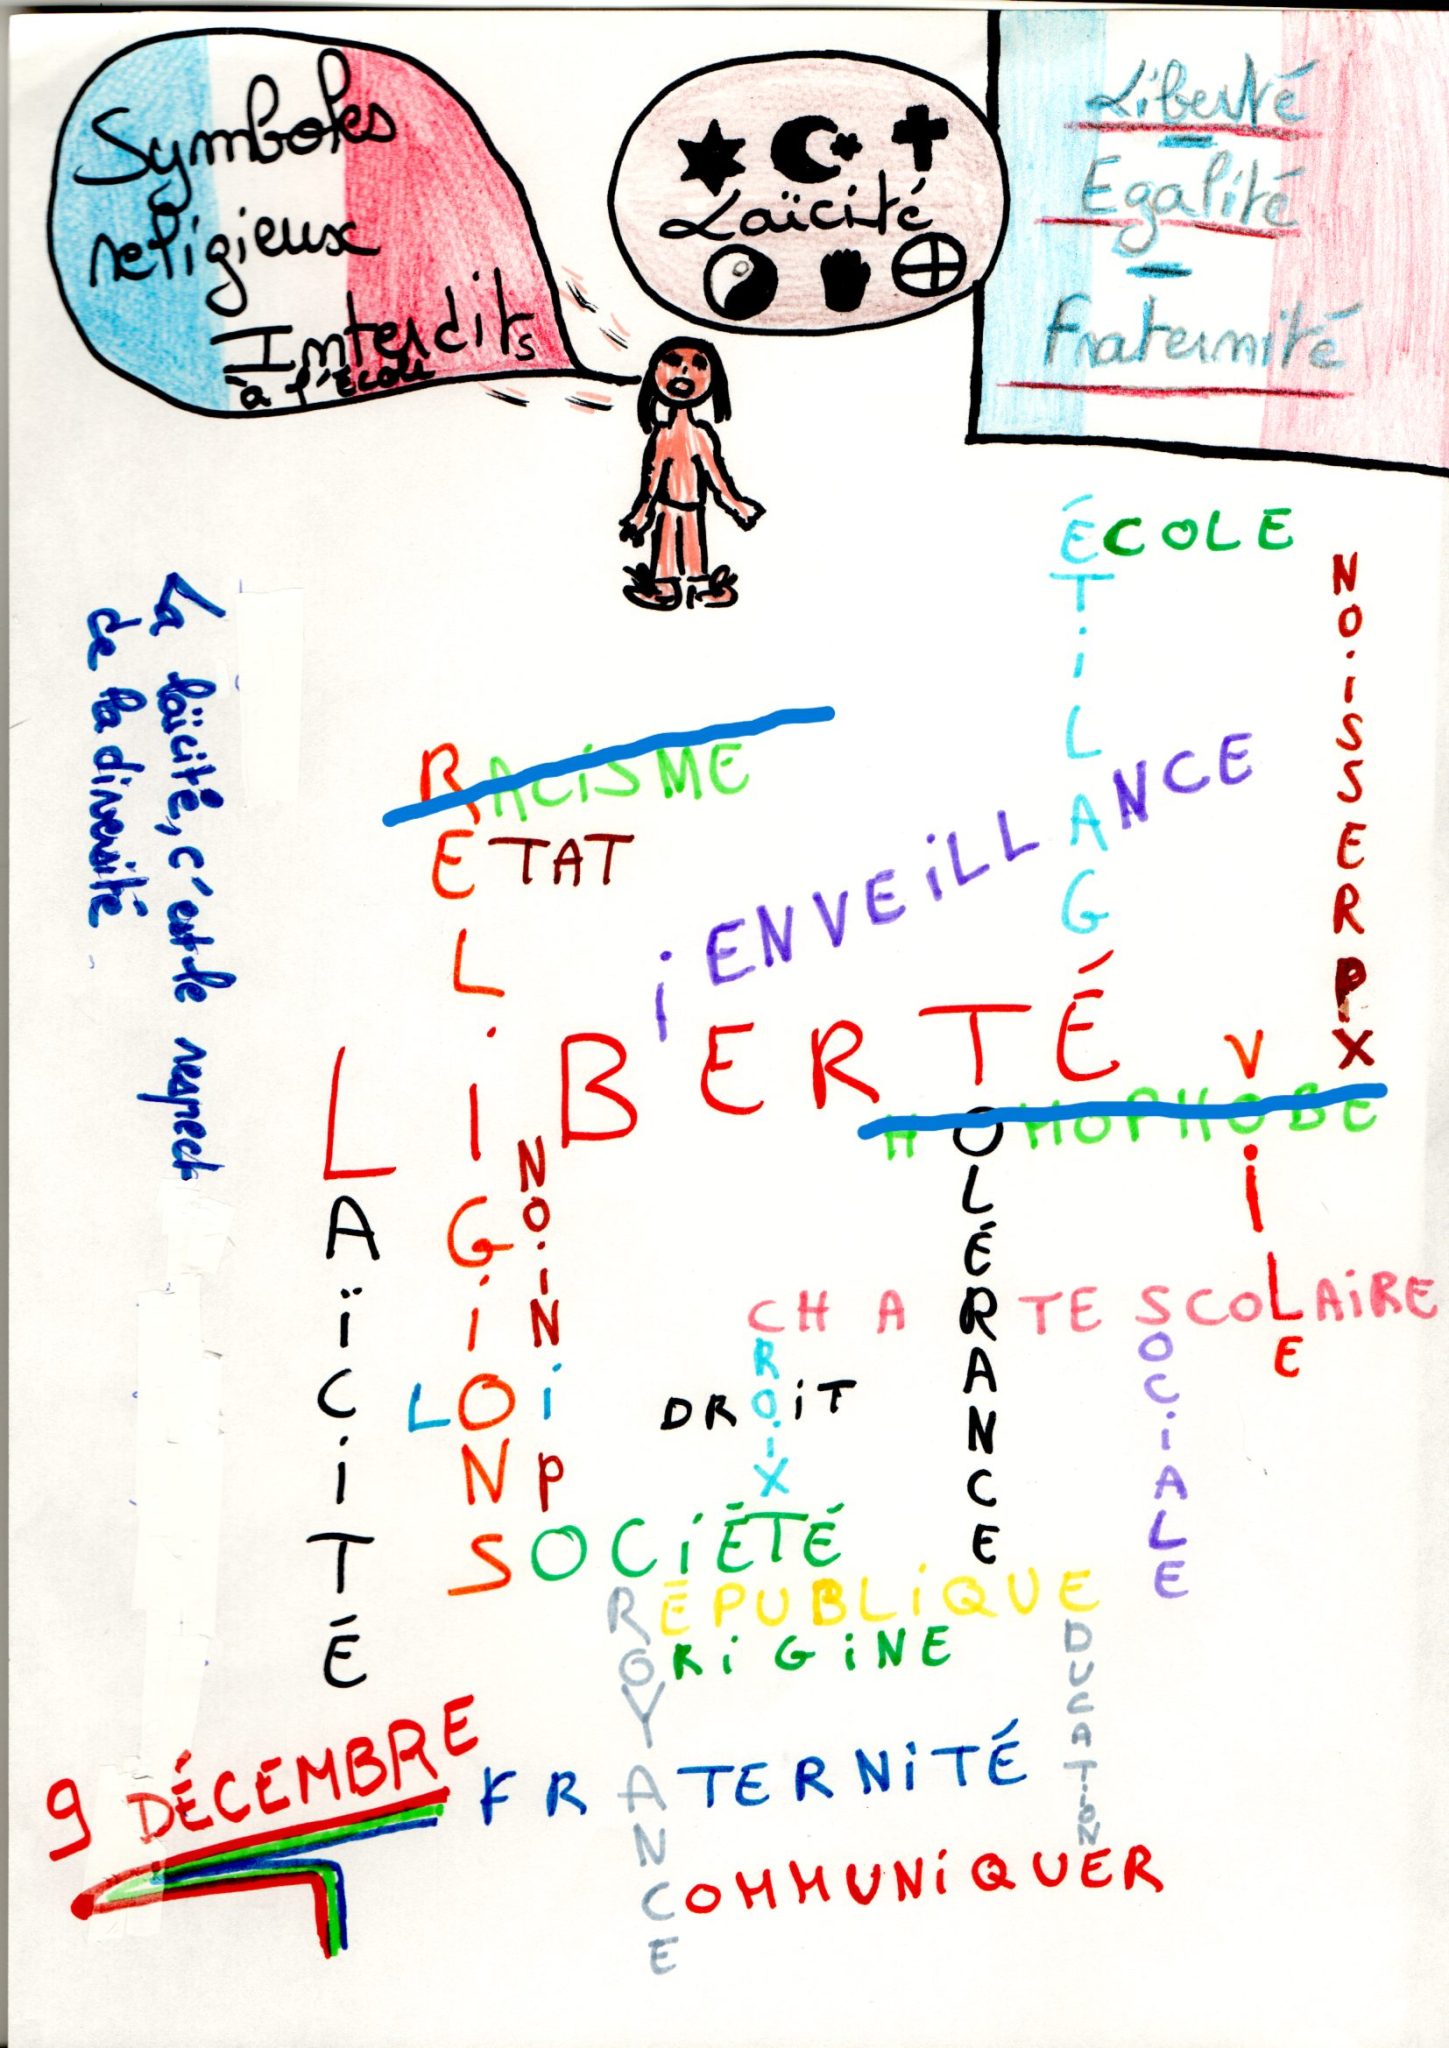 Symboles
religieux
Interdits
à l'école
Laïcité
Liberté
Egalité
Fraternité
La laïcité, c'est le respect
de la diversité
ÉCOLE
ÉTILAGÉ
NOISSERPX
RACISME
RELIGIONS
ETAT
iENVEILLANCE
LIBERTÉ
LAÏCITÉ
NOINiP
HOMOPHOBE
TOLÉRANCE
ViLE
CHARTE SCOLAIRE
CROIX
SOCIALE
LOi
DROIT
SOCIÉTÉ
CROYANCE
RÉPUBLIQUE
EDUCATION
ORIGINE
9 DÉCEMBRE
FRATERNITÉ
COMMUNIQUER